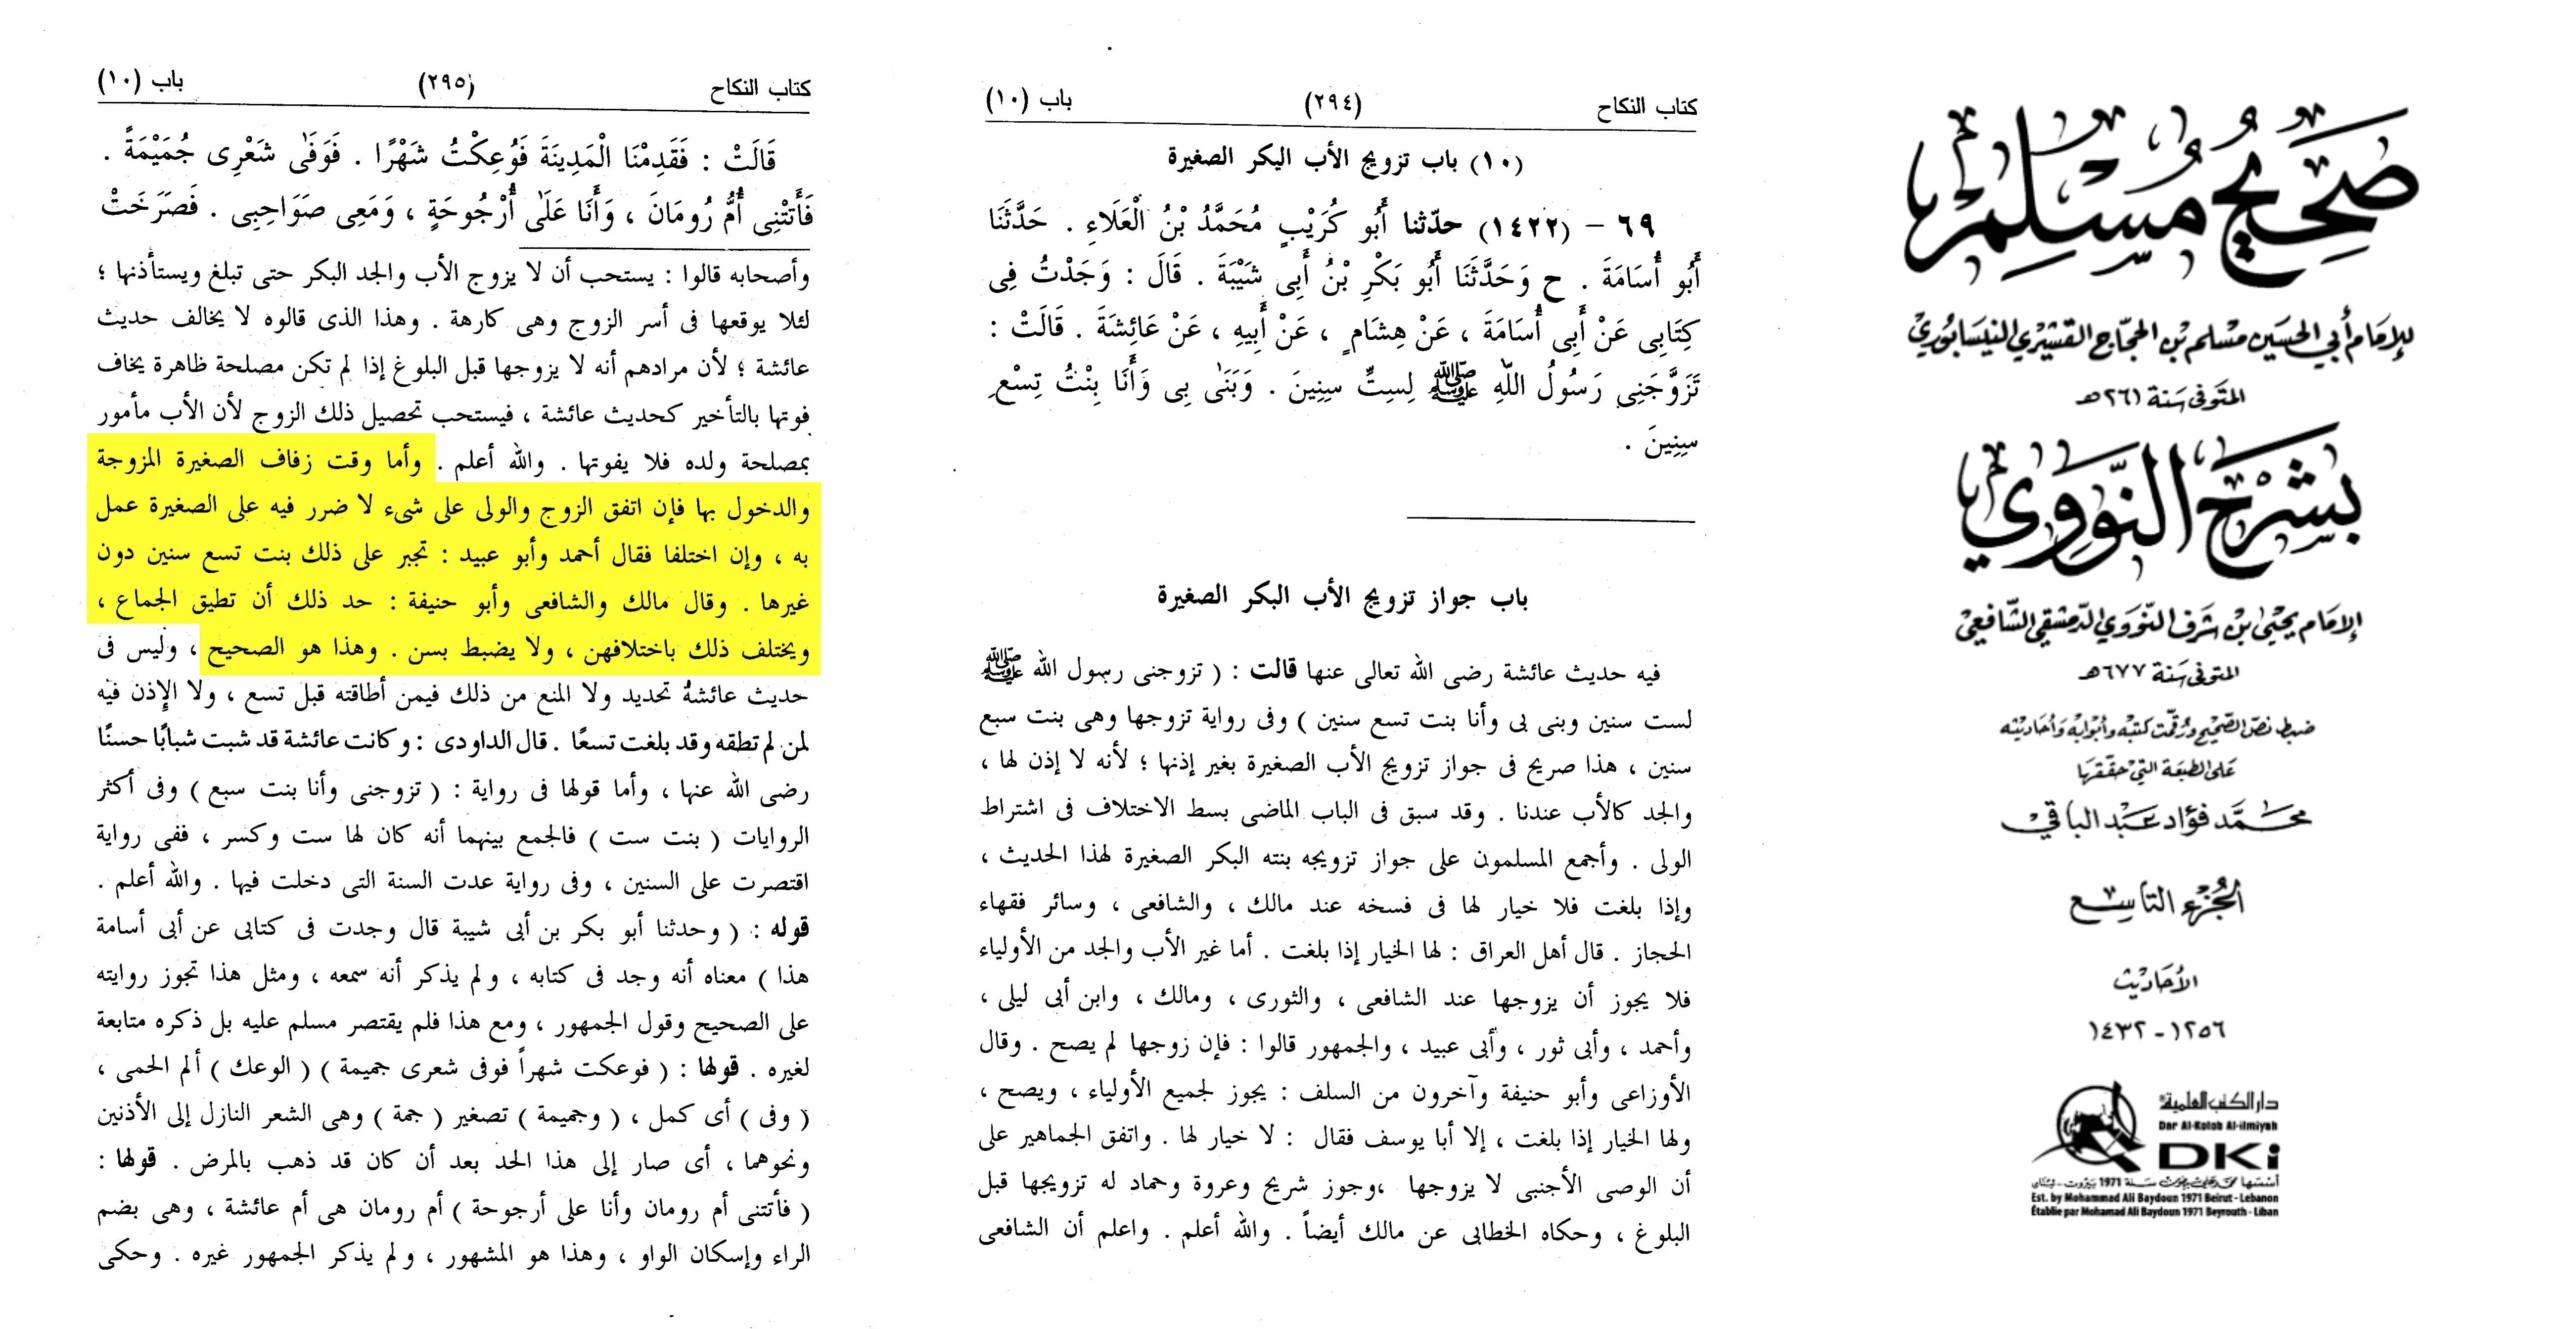 صحيح مسلم
للإمام أبي الحسين مسلم بن الحجّاج القشيري النيسابوري
المتوفى سنة ٢٦١ هـ
بشرح النووي
الإمام يحيى بن شرف النووي الدمشقي الشافعي
المتوفى سنة ٦٧٧ هـ
ضبط نصّ الصحيح ورقّمت كتبه وأبوابه وأحاديثه
على الطبعة التي حققها
محمد فؤاد عبد الباقي
الجزء التاسع
الأحاديث
١٢٥٦ - ١٤٣٢
دار الكتب العلمية
Dar Al-Kotob Al-ilmiyah
DKi
أسسها محمد علي بيضون سنة 1971 بيروت - لبنان
Est. by Mohammad Ali Baydoun 1971 Beirut - Lebanon
Établie par Mohamad Ali Baydoun 1971 Beyrouth - Liban
كتاب النكاح (٢٩٤) باب (١٠)
(١٠) باب تزويج الأب البكر الصغيرة
٦٩ - (١٤٢٢) حدّثنا أَبُو كُرَيْبٍ مُحَمَّدُ بْنُ الْعَلَاءِ . حَدَّثَنَا
أَبُو أُسَامَةَ . ح وَحَدَّثَنَا أَبُو بَكْرِ بْنُ أَبِى شَيْبَةَ . قَالَ : وَجَدْتُ فِى
كِتَابِى عَنْ أَبِى أُسَامَةَ ، عَنْ هِشَامٍ ، عَنْ أَبِيهِ ، عَنْ عَائِشَةَ . قَالَتْ :
تَزَوَّجَنِى رَسُولُ اللّهِ ﷺ لِسِتِّ سِنِينَ . وَبَنَىٰ بِى وَأَنَا بِنْتُ تِسْعِ
سِنِينَ .
باب جواز تزويج الأب البكر الصغيرة
فيه حديث عائشة رضى الله تعالى عنها قالت : ( تزوجنى رسول الله ﷺ
لست سنين وبنى بى وأنا بنت تسع سنين ) وفى رواية تزوجها وهى بنت سبع
سنين ، هذا صريح فى جواز تزويج الأب الصغيرة بغير إذنها ؛ لأنه لا إذن لها ،
والجد كالأب عندنا . وقد سبق فى الباب الماضى بسط الاختلاف فى اشتراط
الولى . وأجمع المسلمون على جواز تزويجه بنته البكر الصغيرة لهذا الحديث ،
وإذا بلغت فلا خيار لها فى فسخه عند مالك ، والشافعى ، وسائر فقهاء
الحجاز . قال أهل العراق : لها الخيار إذا بلغت . أما غير الأب والجد من الأولياء
فلا يجوز أن يزوجها عند الشافعى ، والثورى ، ومالك ، وابن أبى ليلى ،
وأحمد ، وأبى ثور ، وأبى عبيد ، والجمهور قالوا : فإن زوجها لم يصح . وقال
الأوزاعى وأبو حنيفة وآخرون من السلف : يجوز لجميع الأولياء ، ويصح ،
ولها الخيار إذا بلغت ، إلا أبا يوسف فقال : لا خيار لها . واتفق الجماهير على
أن الوصى الأجنبى لا يزوجها ،وجوز شريح وعروة وحماد له تزويجها قبل
البلوغ ، وحكاه الخطابى عن مالك أيضاً . والله أعلم . واعلم أن الشافعى
كتاب النكاح (٢٩٥) باب (١٠)
قَالَتْ : فَقَدِمْنَا الْمَدِينَةَ فَوُعِكْتُ شَهْرًا . فَوَفَىٰ شَعْرِى جُمَيْمَةً .
فَأَتَتْنِى أُمُّ رُومَانَ ، وَأَنَا عَلَىٰ أُرْجُوحَةٍ ، وَمَعِى صَوَاحِبِى . فَصَرَخَتْ
وأصحابه قالوا : يستحب أن لا يزوج الأب والجد البكر حتى تبلغ ويستأذنها ؛
لئلا يوقعها فى أسر الزوج وهى كارهة . وهذا الذى قالوه لا يخالف حديث
عائشة ؛ لأن مرادهم أنه لا يزوجها قبل البلوغ إذا لم تكن مصلحة ظاهرة يخاف
فوتها بالتأخير كحديث عائشة ، فيستحب تحصيل ذلك الزوج لأن الأب مأمور
بمصلحة ولده فلا يفوتها . والله أعلم . وأما وقت زفاف الصغيرة المزوجة
والدخول بها فإن اتفق الزوج والولى على شىء لا ضرر فيه على الصغيرة عمل
به ، وإن اختلفا فقال أحمد وأبو عبيد : تجبر على ذلك بنت تسع سنين دون
غيرها . وقال مالك والشافعى وأبو حنيفة : حد ذلك أن تطيق الجماع ،
ويختلف ذلك باختلافهن ، ولا يضبط بسن . وهذا هو الصحيح ، وليس فى
حديث عائشة تحديد ولا المنع من ذلك فيمن أطاقته قبل تسع ، ولا الإذن فيه
لمن لم تطقه وقد بلغت تسعًا . قال الداودى : وكانت عائشة قد شبت شبابًا حسنًا
رضى الله عنها ، وأما قولها فى رواية : ( تزوجنى وأنا بنت سبع ) وفى أكثر
الروايات ( بنت ست ) فالجمع بينهما أنه كان لها ست وكسر ، ففى رواية
اقتصرت على السنين ، وفى رواية عدت السنة التى دخلت فيها . والله أعلم .
قوله : ( وحدثنا أبو بكر بن أبى شيبة قال وجدت فى كتابى عن أبى أسامة
هذا ) معناه أنه وجد فى كتابه ، ولم يذكر أنه سمعه ، ومثل هذا تجوز روايته
على الصحيح وقول الجمهور ، ومع هذا فلم يقتصر مسلم عليه بل ذكره متابعة
لغيره . قولها : ( فوعكت شهراً فوفى شعرى جميمة ) ( الوعك ) ألم الحمى ،
( وفى ) أى كمل ، ( وجميمة ) تصغير ( جمة ) وهى الشعر النازل إلى الأذنين
ونحوهما ، أى صار إلى هذا الحد بعد أن كان قد ذهب بالمرض . قولها :
( فأتتنى أم رومان وأنا على أرجوحة ) أم رومان هى أم عائشة ، وهى بضم
الراء وإسكان الواو ، وهذا هو المشهور ، ولم يذكر الجمهور غيره . وحكى